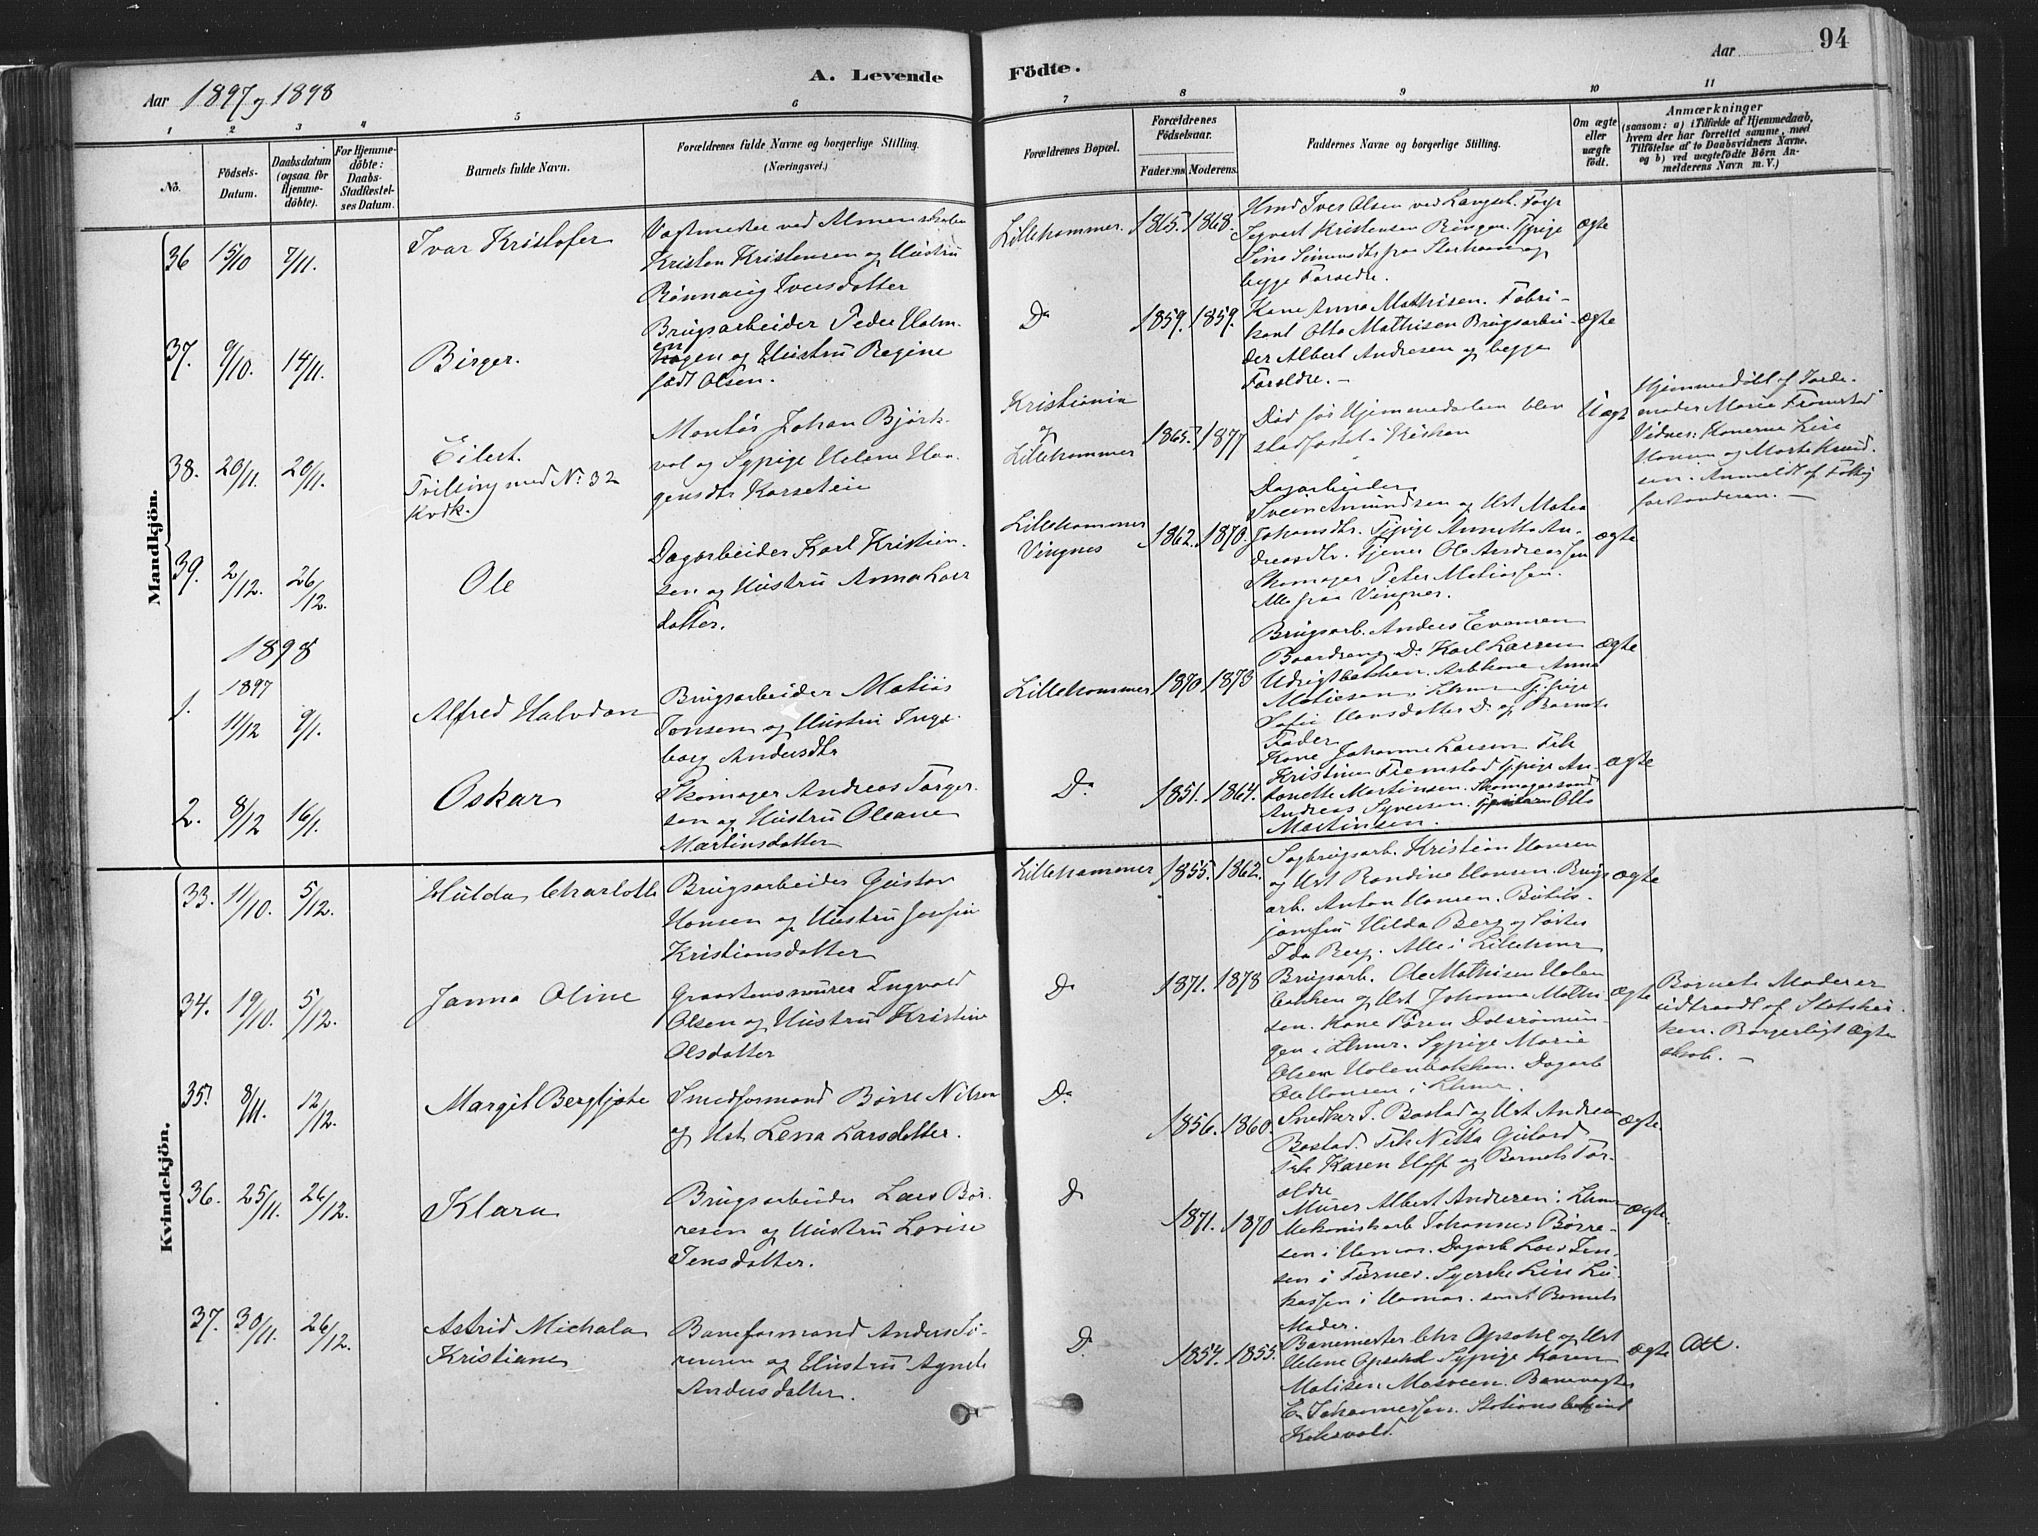 Aar 1897 og 1898
A. Levende
Födte.
Aar
94
1
2
3
4
5
6
7
8
9
10
11
No.
Födsels-
Datum.
Daabsdatum
(ogsaa for
Hjemme-
döbte).
For Hjemme-
döbte:
Daabs-
Stadfæstel-
ses Datum.
Barnets fulde Navn.
Forældrenes fulde Navne og borgerlige Stilling.
(Næringsvei.)
Forældrenes Bopæl.
Forældrenes
Födselsaar.
Faderens.
Moderens.
Faddernes Navne og borgerlige Stilling.
Om ægte
eller
uægte
födt.
Anmærkninger
(saasom: a) i Tilfælde af Hjemmedaab,
hvem der har forrettet samme, med
Tilföielse af to Daabsvidners Navne,
og b) ved uægtefödte Börn An-
melderens Navn m. V.)
Mandkjön.
36
15/10
7/11.
Ivar Kristofer
Vagtmester ved Almenskolen
Kristen Kristensen og Hustru
Rönnaug Iversdatter
Lillehammer.
1865.
1868.
Hmd Iver Olsen ved Langset.
Segvart Kristensen Ringen. Sypige
Sina Simensdtr fra Storhove og
begge Foreldre.
ægte
37.
9/10.
14/11.
Birger.
Brugsarbeider Peder Halm-
en
hagen og Hustru Regine
født Olsen.
Do
1859.
1859.
Kone Anna Mathisen. Fabri-
kant Otto Mathisen Brugsarbei-
der Albert Andresen og begge
Foreldre. –
ægte
38.
20/11.
20/11.
Eilert.
Tvilling med No 32
Kvdk.
Montör Johan Björk-
vol og Sypige Helene Haa-
gensdtr Korseteie
Kristiania
og
Lillehammer
1865.
1877
Död för Hjemmedaaben blev
stadfæstet i Kirken
Uægte
Hjemmedöbt af Jorde-
moder Marie Fremstad
Vidner: Konerne Lise
Hansen og Marte Knud-
sen. Anmeldt af Fattig
forstanderen. –
39.
2/12.
26/12.
Ole
Dagarbeider Karl Kristian-
sen og Hustru Anna Lars
datter.
Lillehammer
Vingnes
1862.
1870.
Dagarbeider
Svein Amundsen og Hst Matea
Johansdtr. Sypige Annette An-
dreasdtr. Tjener Ole Andreassen
Skomager Peter Matiassen.
Alle fra Vingnes.
ægte
1898
1.
1897
11/12
9/1.
Alfred Halvdan
Brugsarbeider Matias
Jonsen og Hustru Inge-
borg Andersdtr
Lillehammer
1870
1873
Brugsarb. Anders Evensen
Baardseng Do Karl Larsen
Udrigtbakken. Arbkone Anna
Matiesen i Lhmr Sypige
Sofie Hansdatter Do og Barnets
Fader
ægte
2.
8/12
16/1.
Oskar
Skomager Andreas Torger-
sen og Hustru Oleane
Martinsdatter
Do.
1851.
1864.
Kone Johanne Larsen Frk
Kristine Fremstad Sypige An-
tonette Martinsen. Skomagersvend
Andreas Syversen. Otto
Martinsen.
ægte
Kvindekjön.
33.
11/10.
5/12.
Hulda Charlotte
Brugsarbeider Gustav
Hansen og Hustru Josefine
Kristiansdatter
Lillehammer
1855.
1862.
Sagbrugsarb. Kristian Hansen
og Hst Randine Hansen. Brugs
arb. Anton Hansen. Butiks-
jomfru Hilda Berg og Søster
Ida Berg. Alle i Lillehmr
ægte
34.
19/10.
5/12.
Janna Oline
Graastensmurer Ingvald
Olsen og Hustru Kristine
Olsdatter
Do
1871.
1878
Brugsarb. Ole Mathisen Holen
bakken og Hst Johanna Mathi-
sen. Kone Karen Dalsrönnin-
gen i Lhmr. Sypige Marie
Olsen Holenbakken. Dagarb
Ole Hansen i Lhmr.
ægte
Barnets Moder er
udtraadt af Statskir-
ken. Borgerligt Ægte
skab. –
35.
8/11.
12/12.
Margit Bergljote
Smedformand Børre Nilsen
og Hst Lena Larsdatter.
Do.
1856.
1860.
Snedker J. Bastad og Hst Andrea
Bastad. Frk Netta Gulord
Frk Karen Hoff og Barnets For-
ældre
ægte.
36.
25/11.
26/12.
Klara
Brugsarbeider Lars Bør-
resen og Hustru Lovise
Jensdatter.
Do
1871.
1870
Murer Albert Andresen i Lhmr
Mekaniskarb Johannes Børre-
sen i Hamar. Dagarb Lars Jen-
sen i Furnes. Syerske Lise Lu-
kassen i Hamar. samt Barnets
Moder.
ægte.
37.
30/11.
26/12.
Astrid Michala
Kristiane
Baneformand Anders Sö-
rensen og Hustru Agnete
Andersdatter.
Do.
1854.
1855.
Banemester Chr Opsahl og Hst
Helene Opsahl Sypige Karen
Matisen Mosveen. Banevogter
E. Johannessen. Stationsbetjent
Kirkevold.
ægte
Att.